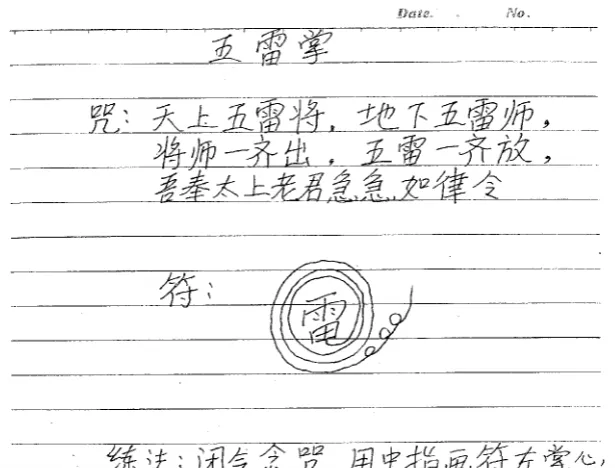 Date. No.
五雷掌
咒：天上五雷将，地下五雷师，
将师一齐出，五雷一齐放，
吾奉太上老君急急如律令
符：
雷
练法：闭气念咒，用中指画符在掌心，